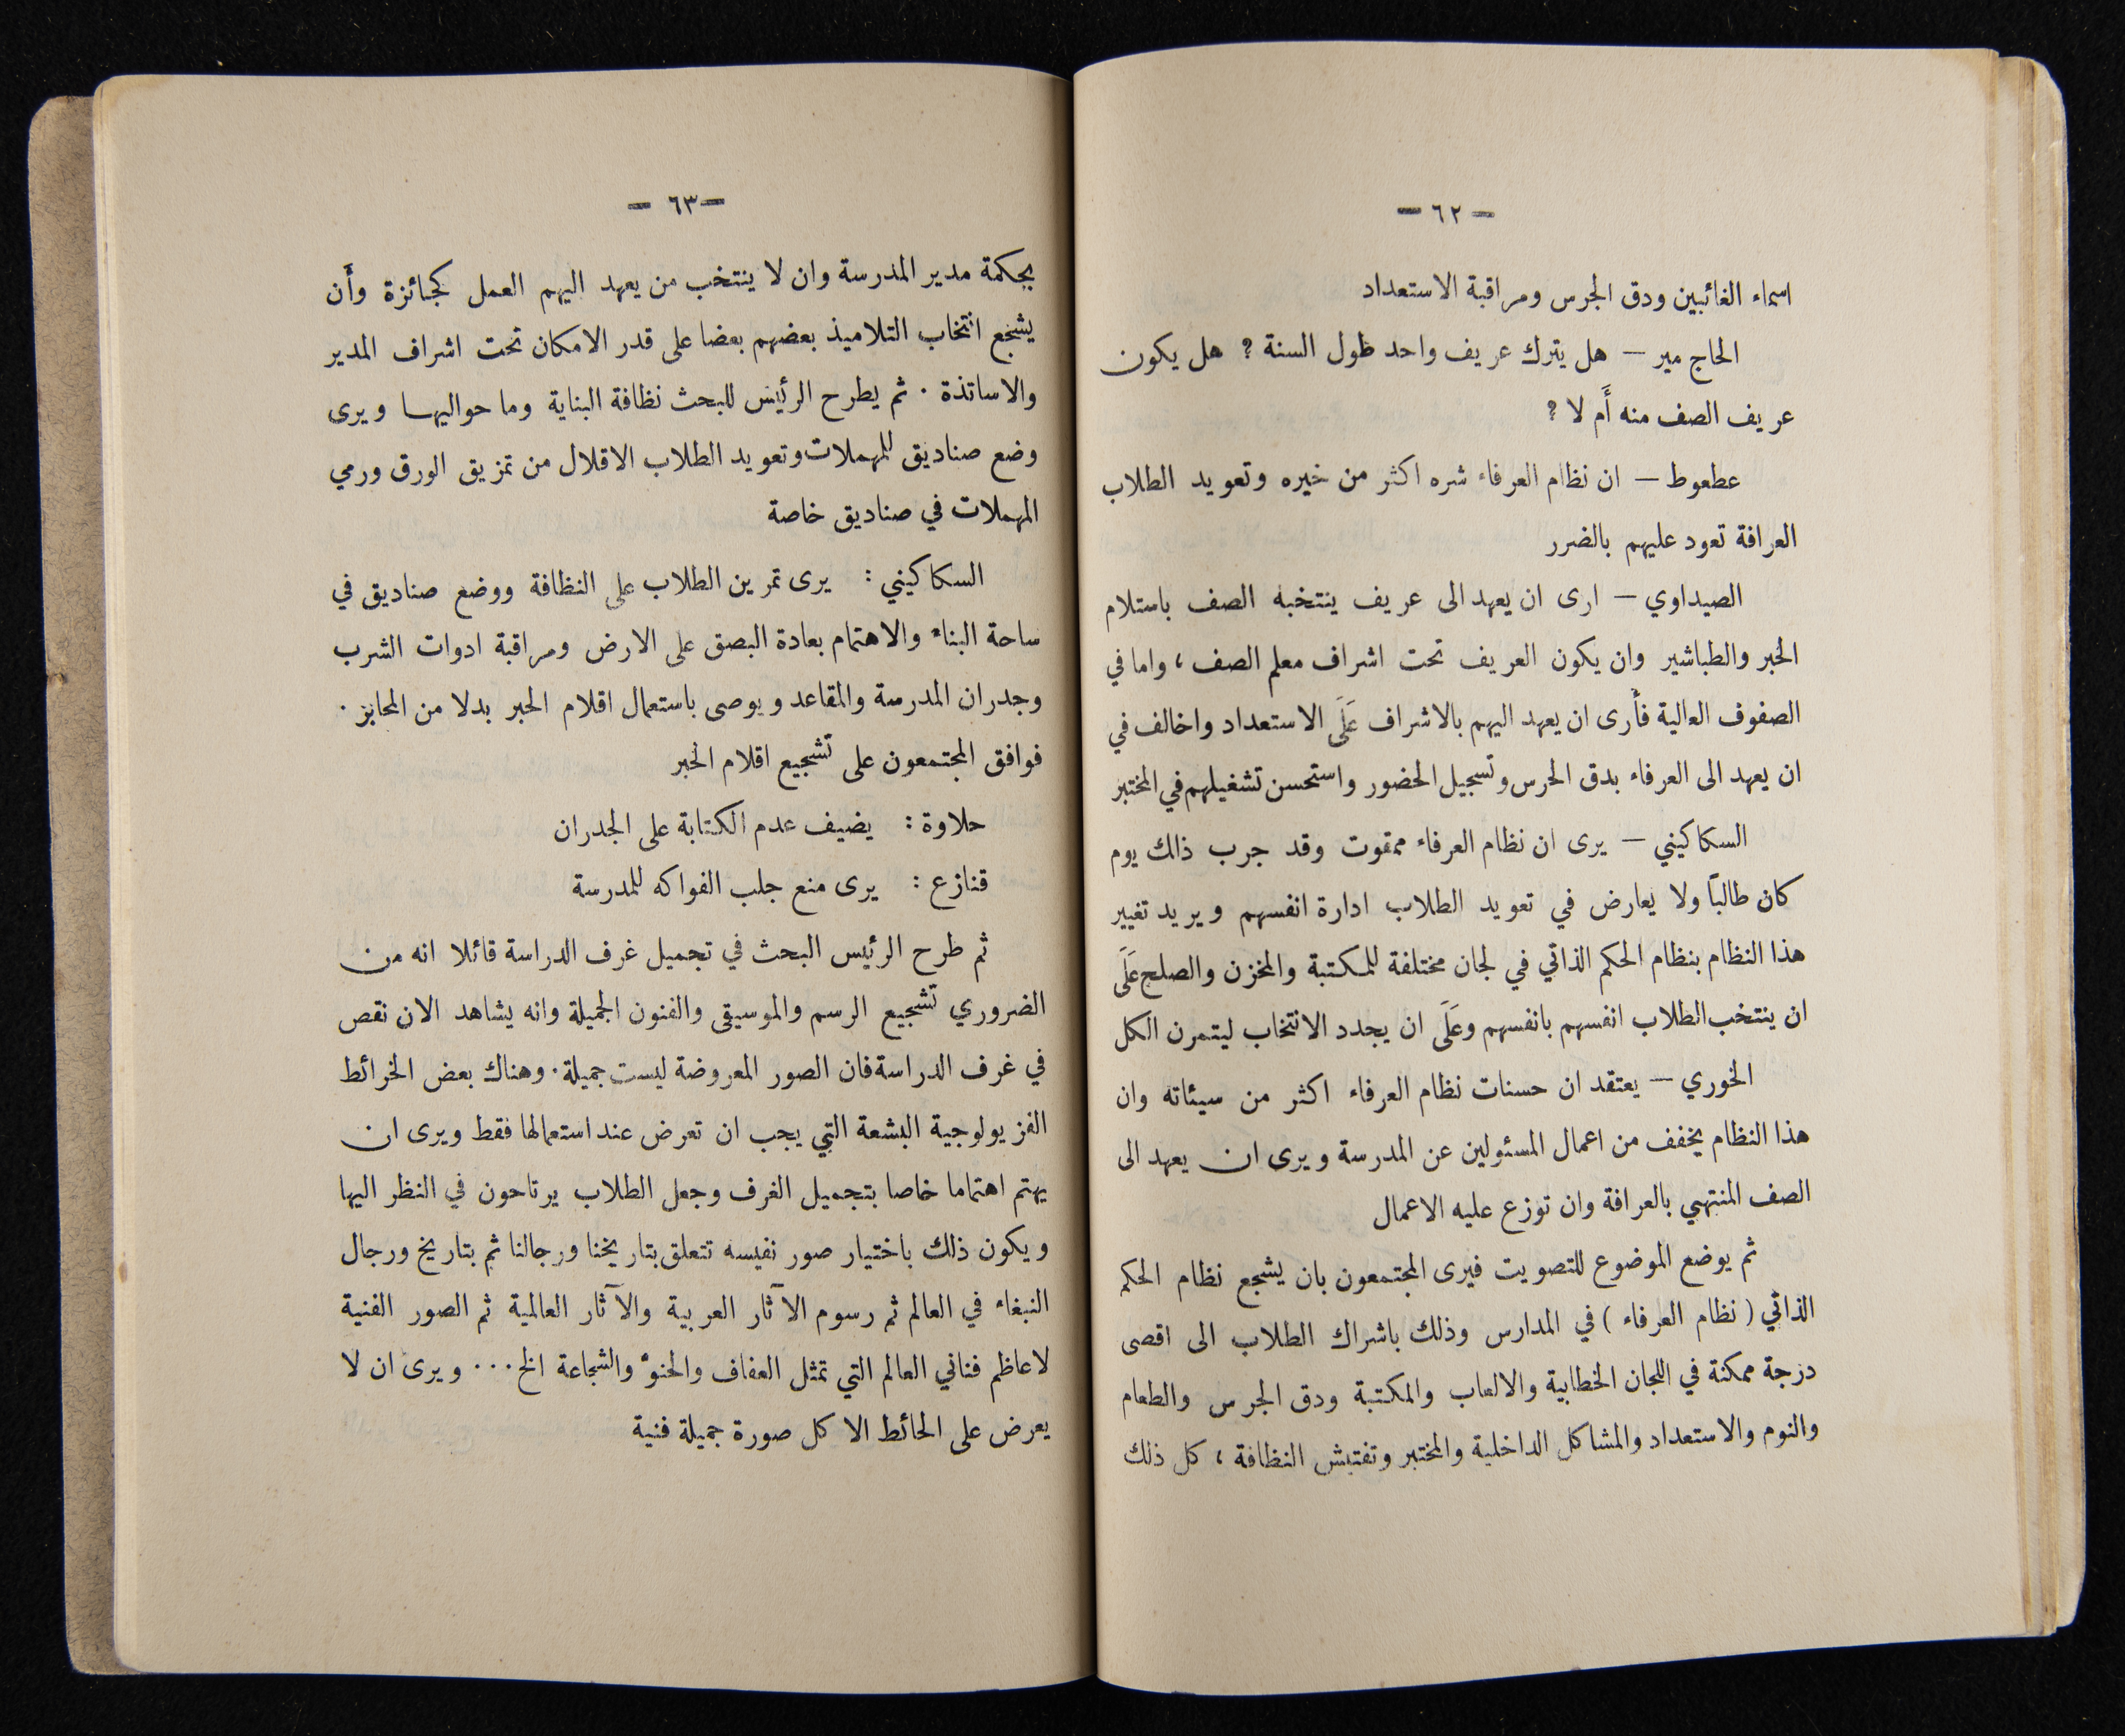 — ٦٢ —
اسماء الغائبين ودق الجرس ومراقبة الاستعداد
الحاج مير — هل يترك عريف واحد طول السنة ؟ هل يكون
عريف الصف منه أَم لا ؟
عطعوط — ان نظام العرفاء شره اكثر من خيره وتعويد الطلاب
العرافة تعود عليهم بالضرر
الصيداوي — ارى ان يعهد الى عريف ينتخبه الصف باستلام
الحبر والطباشير وان يكون العريف تحت اشراف معلم الصف ، واما في
الصفوف العالية فأرى ان يعهد اليهم بالاشراف عَلَى الاستعداد واخالف في
ان يعهد الى العرفاء بدق الحرس وتسجيل الحضور واستحسن تشغيلهم في المختبر
السكاكيني — يرى ان نظام العرفاء ممقوت وقد جرب ذالك يوم
كان طالباً ولا يعارض في تعويد الطلاب ادارة انفسهم ويريد تغيير
هذا النظام بنظام الحكم الذاتي في لجان مختلفة للمكتبة والمخزن والصلح عَلَى
ان ينتخب الطلاب انفسهم بانفسهم وعَلَى ان يجدد الانتخاب ليتمرن الكل
الخوري — يعتقد ان حسنات نظام العرفاء اكثر من سيئاته وان
هذا النظام يخفف من اعمال المسئولين عن المدرسة ويرى ان يعهد الى
الصف المنتهي بالعرافة وان توزع عليه الاعمال
ثم يوضع الموضوع للتصويت فيرى المجتمعون بان يشجع نظام الحكم
الذاتي ( نظام العرفاء ) في المدارس وذلك باشراك الطلاب الى اقصى
درجة ممكنة في اللجان الخطابية والالعاب والمكتبة ودق الجرس والطعام
والنوم والاستعداد والمشاكل الداخلية والمختبر وتفتيش النظافة ، كل ذلك
— ٦٣ —
بحكمة مدير المدرسة وان لا ينتخب من يعهد اليهم العمل كجائزة وأَن
يشجع انتخاب التلاميذ بعضهم بعضا على قدر الامكان تحت اشراف المدير
والاساتذة . ثم يطرح الرئيس للبحث نظافة البناية وما حواليها ويرى
وضع صناديق للمهملات وتعويد الطلاب الاقلال من تمزيق الورق ورمي
المهملات في صناديق خاصة
السكاكيني : يرى تمرين الطلاب على النظافة ووضع صناديق في
ساحة البناء والاهتمام بعادة البصق على الارض ومراقبة ادوات الشرب
وجدران المدرسة والمقاعد ويوصى باستعمال اقلام الحبر بدلا من المحابر .
فوافق المجتمعون على تشجيع اقلام الحبر
حلاوة : يضيف عدم الكتابة على الجدران
قنازع : يرى منع جلب الفواكه للمدرسة
ثم طرح الرئيس البحث في تجميل غرف الدراسة قائلا انه من
الضروري تشجيع الرسم والموسيقى والفنون الجميلة وانه يشاهد الان نقص
في غرف الدراسة فان الصور المعروضة ليست جميلة . وهناك بعض الخرائط
الفزيولوجية البشعة التي يجب ان تعرض عند استعمالها فقط ويرى ان
يهتم اهتماما خاصا بتجميل الغرف وجعل الطلاب يرتاحون في النظر اليها
ويكون ذلك باختيار صور نفيسه تتعلق بتاريخنا ورجالنا ثم بتاريخ ورجال
النبغاء في العالم ثم رسوم الآثار العربية والآثار العالمية ثم الصور الفنية
لاعاظم فناني العالم التي تمثل العفاف والحنوّ والشجاعة الخ ... ويرى ان لا
يعرض على الحائط الا كل صورة جميلة فنية